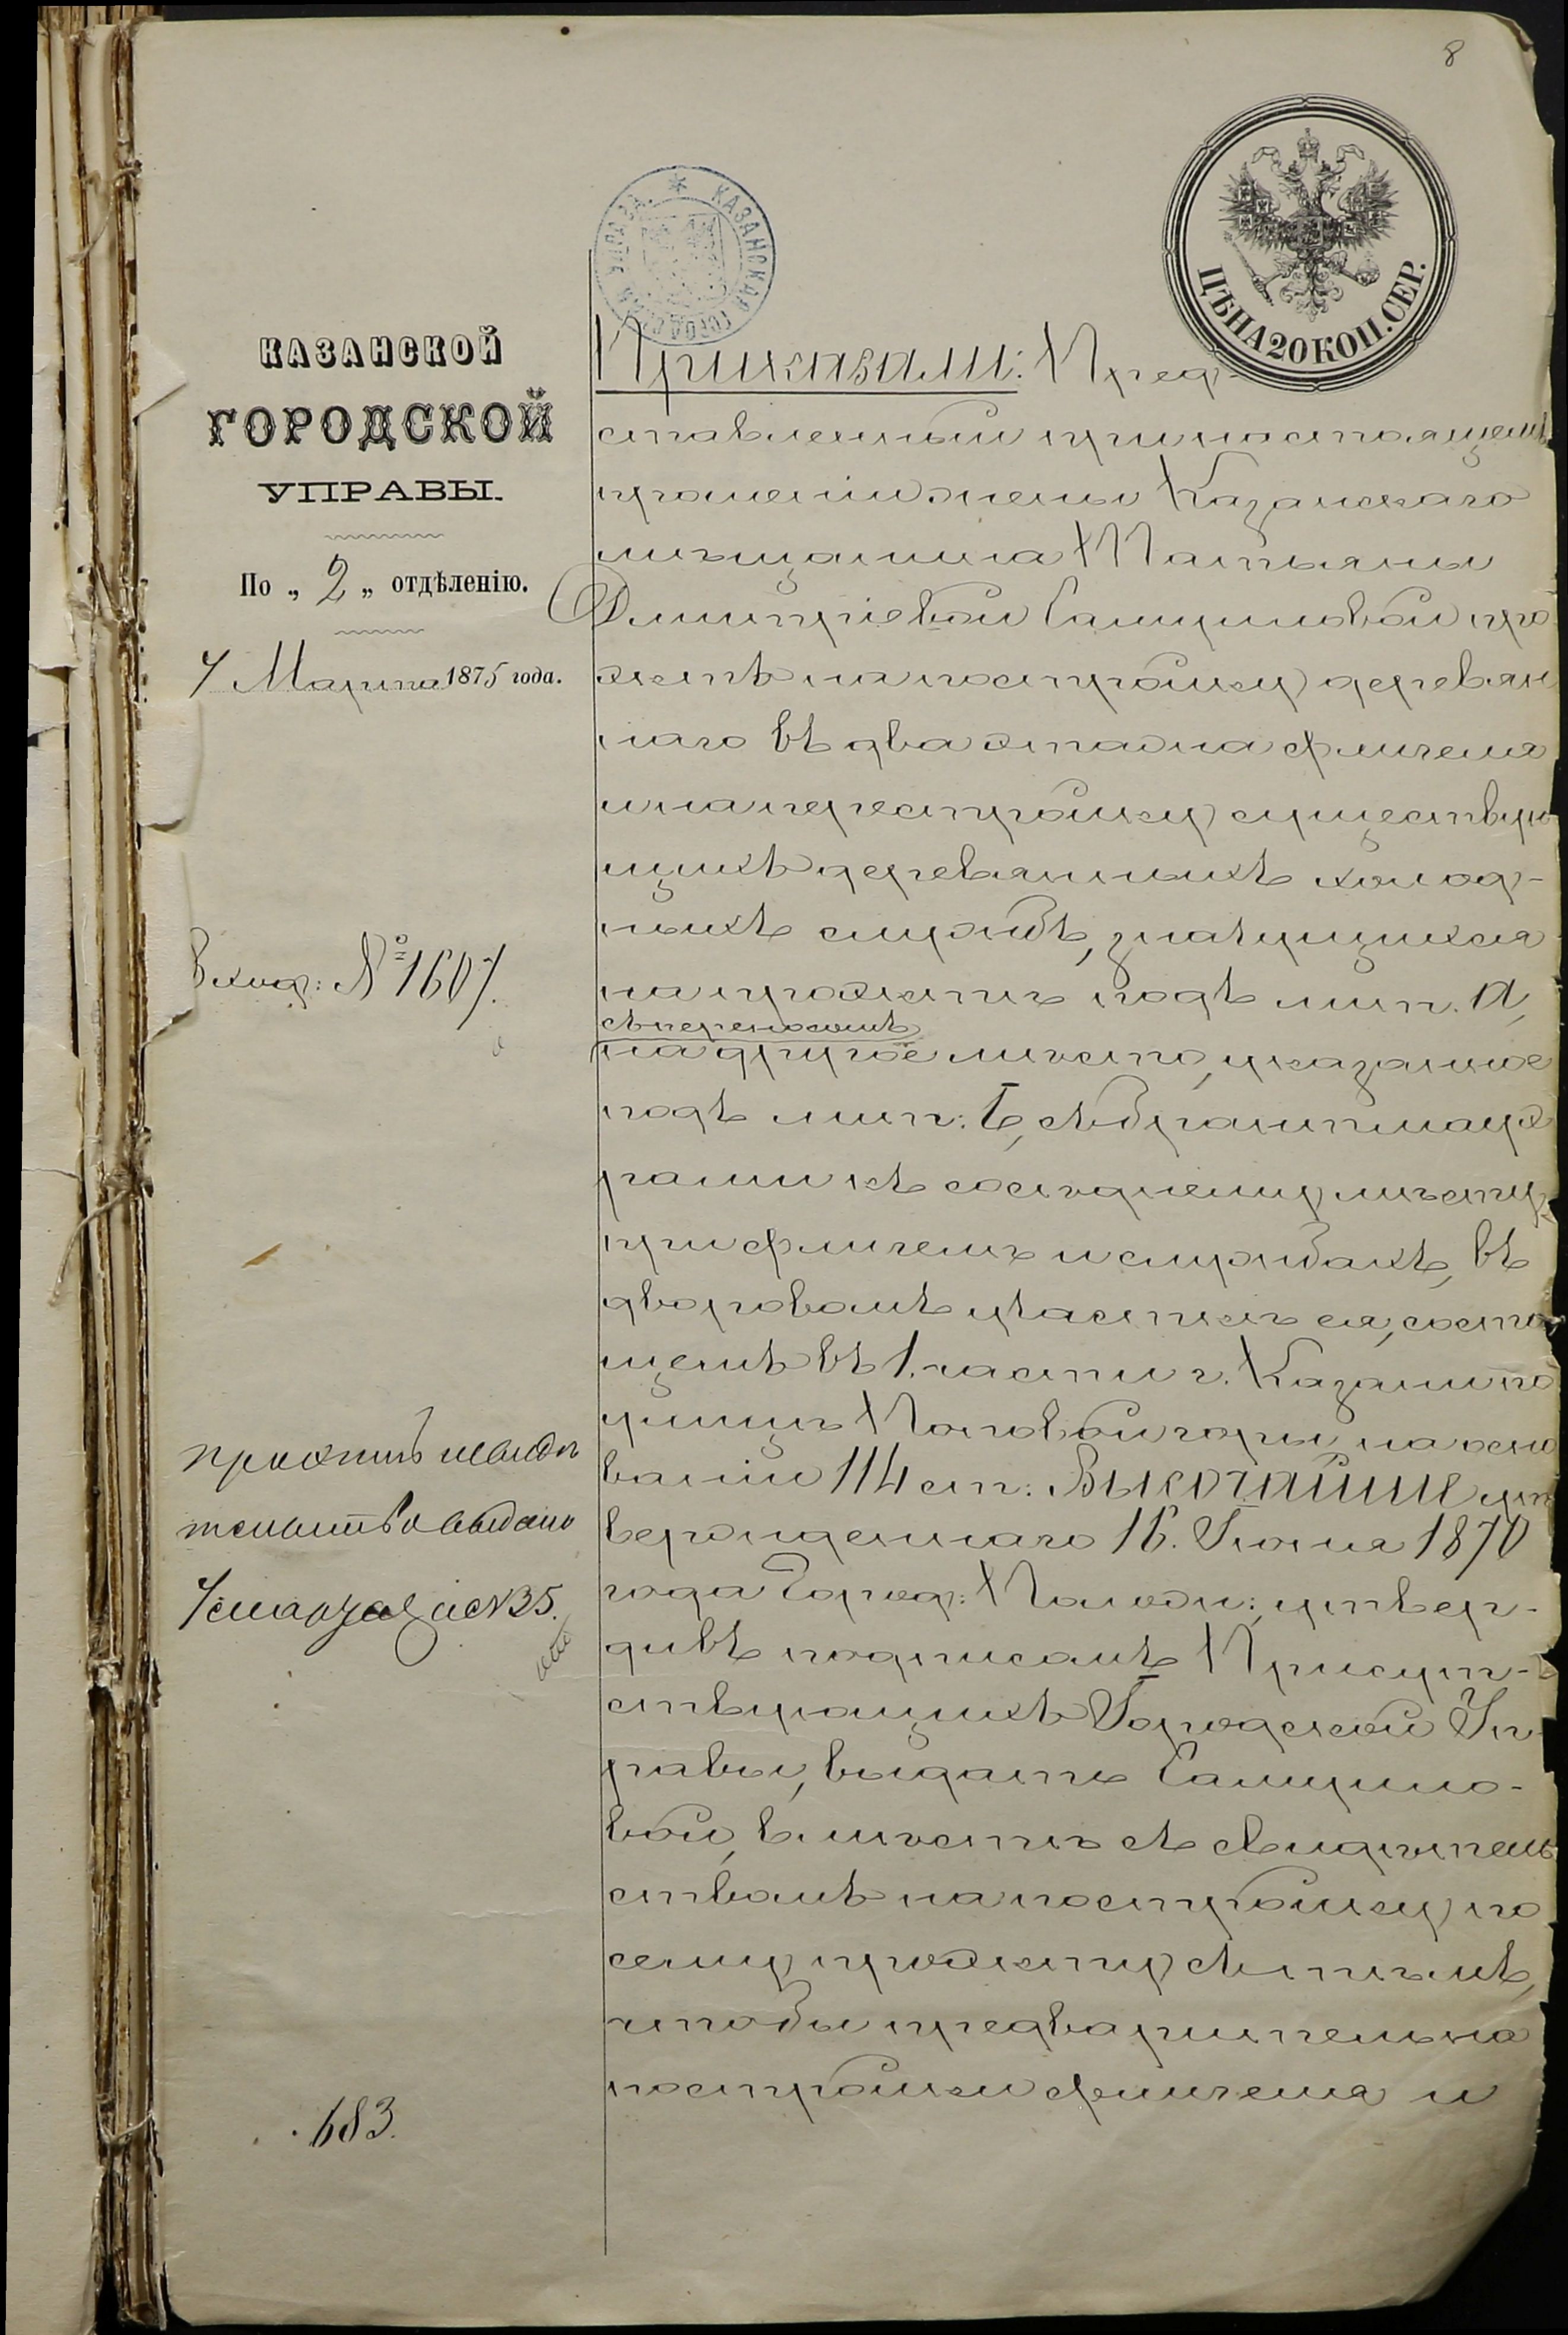 8
КАЗАНСКАЯ ГОРОДСКАЯ УПРАВА
ЦѢНА 20 КОП. СЕР.
КАЗАНСКОЙ
ГОРОДСКОЙ
УПРАВЫ.
По „ 2 „ отдѣленію.
7 Марта 1875 года.
Вход: № 1607.
проэктъ и свидѣ
тельство выдано
7 марта за № 35.
683.
Приказали: Пред-
ставленный при настоящемъ
прошеніи жены Казанскаго
мѣщанина Татьяны
Дмитріевой Самуиловой про
эктъ на постройку деревян
наго въ два этажа флигеля
и на перестройку существую
щихъ деревянныхъ холод-
ныхъ службъ, значущихся
на проэктѣ подъ лит. А,
съ переносомъ
на другое мѣсто, указанное
подъ лит: Б, съ брантмауэ
рами къ сосѣднему мѣсту,
при флигелѣ и службахъ, въ
дворовомъ участкѣ ея, состоя
щемъ въ 1. части г. Казани по
улицѣ Поповой горы, на осно
ваніи 114 ст: Высочайше ут
вержденнаго 16. Іюня 1870
года Город: Полож:, утвер-
дивъ подписомъ Присут-
ствующихъ Городской Уп-
равы, выдать Самуило-
вой, вмѣстѣ съ свидѣтель
ствомъ на постройку по
сему проэкту съ тѣмъ,
чтобы предварительно
постройки флигеля и